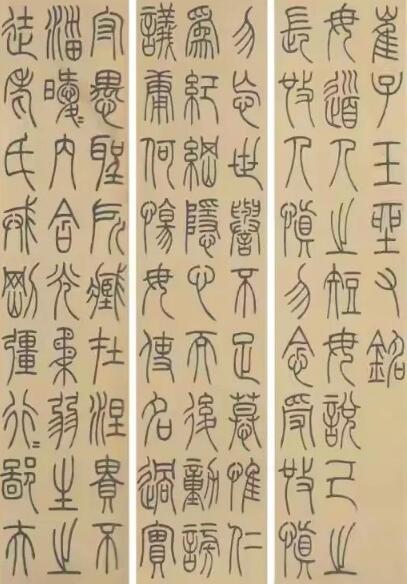 崔子玉座右銘
毋道人之短毋說己之
長施人慎勿念受施慎
勿忘世譽不足慕惟仁
為紀綱隱心而後動謗
議庸何傷毋使名過實
守愚聖所臧在涅貴不
淄曖〻內含光柔弱生之
徒老氏戒剛彊行〻鄙夫